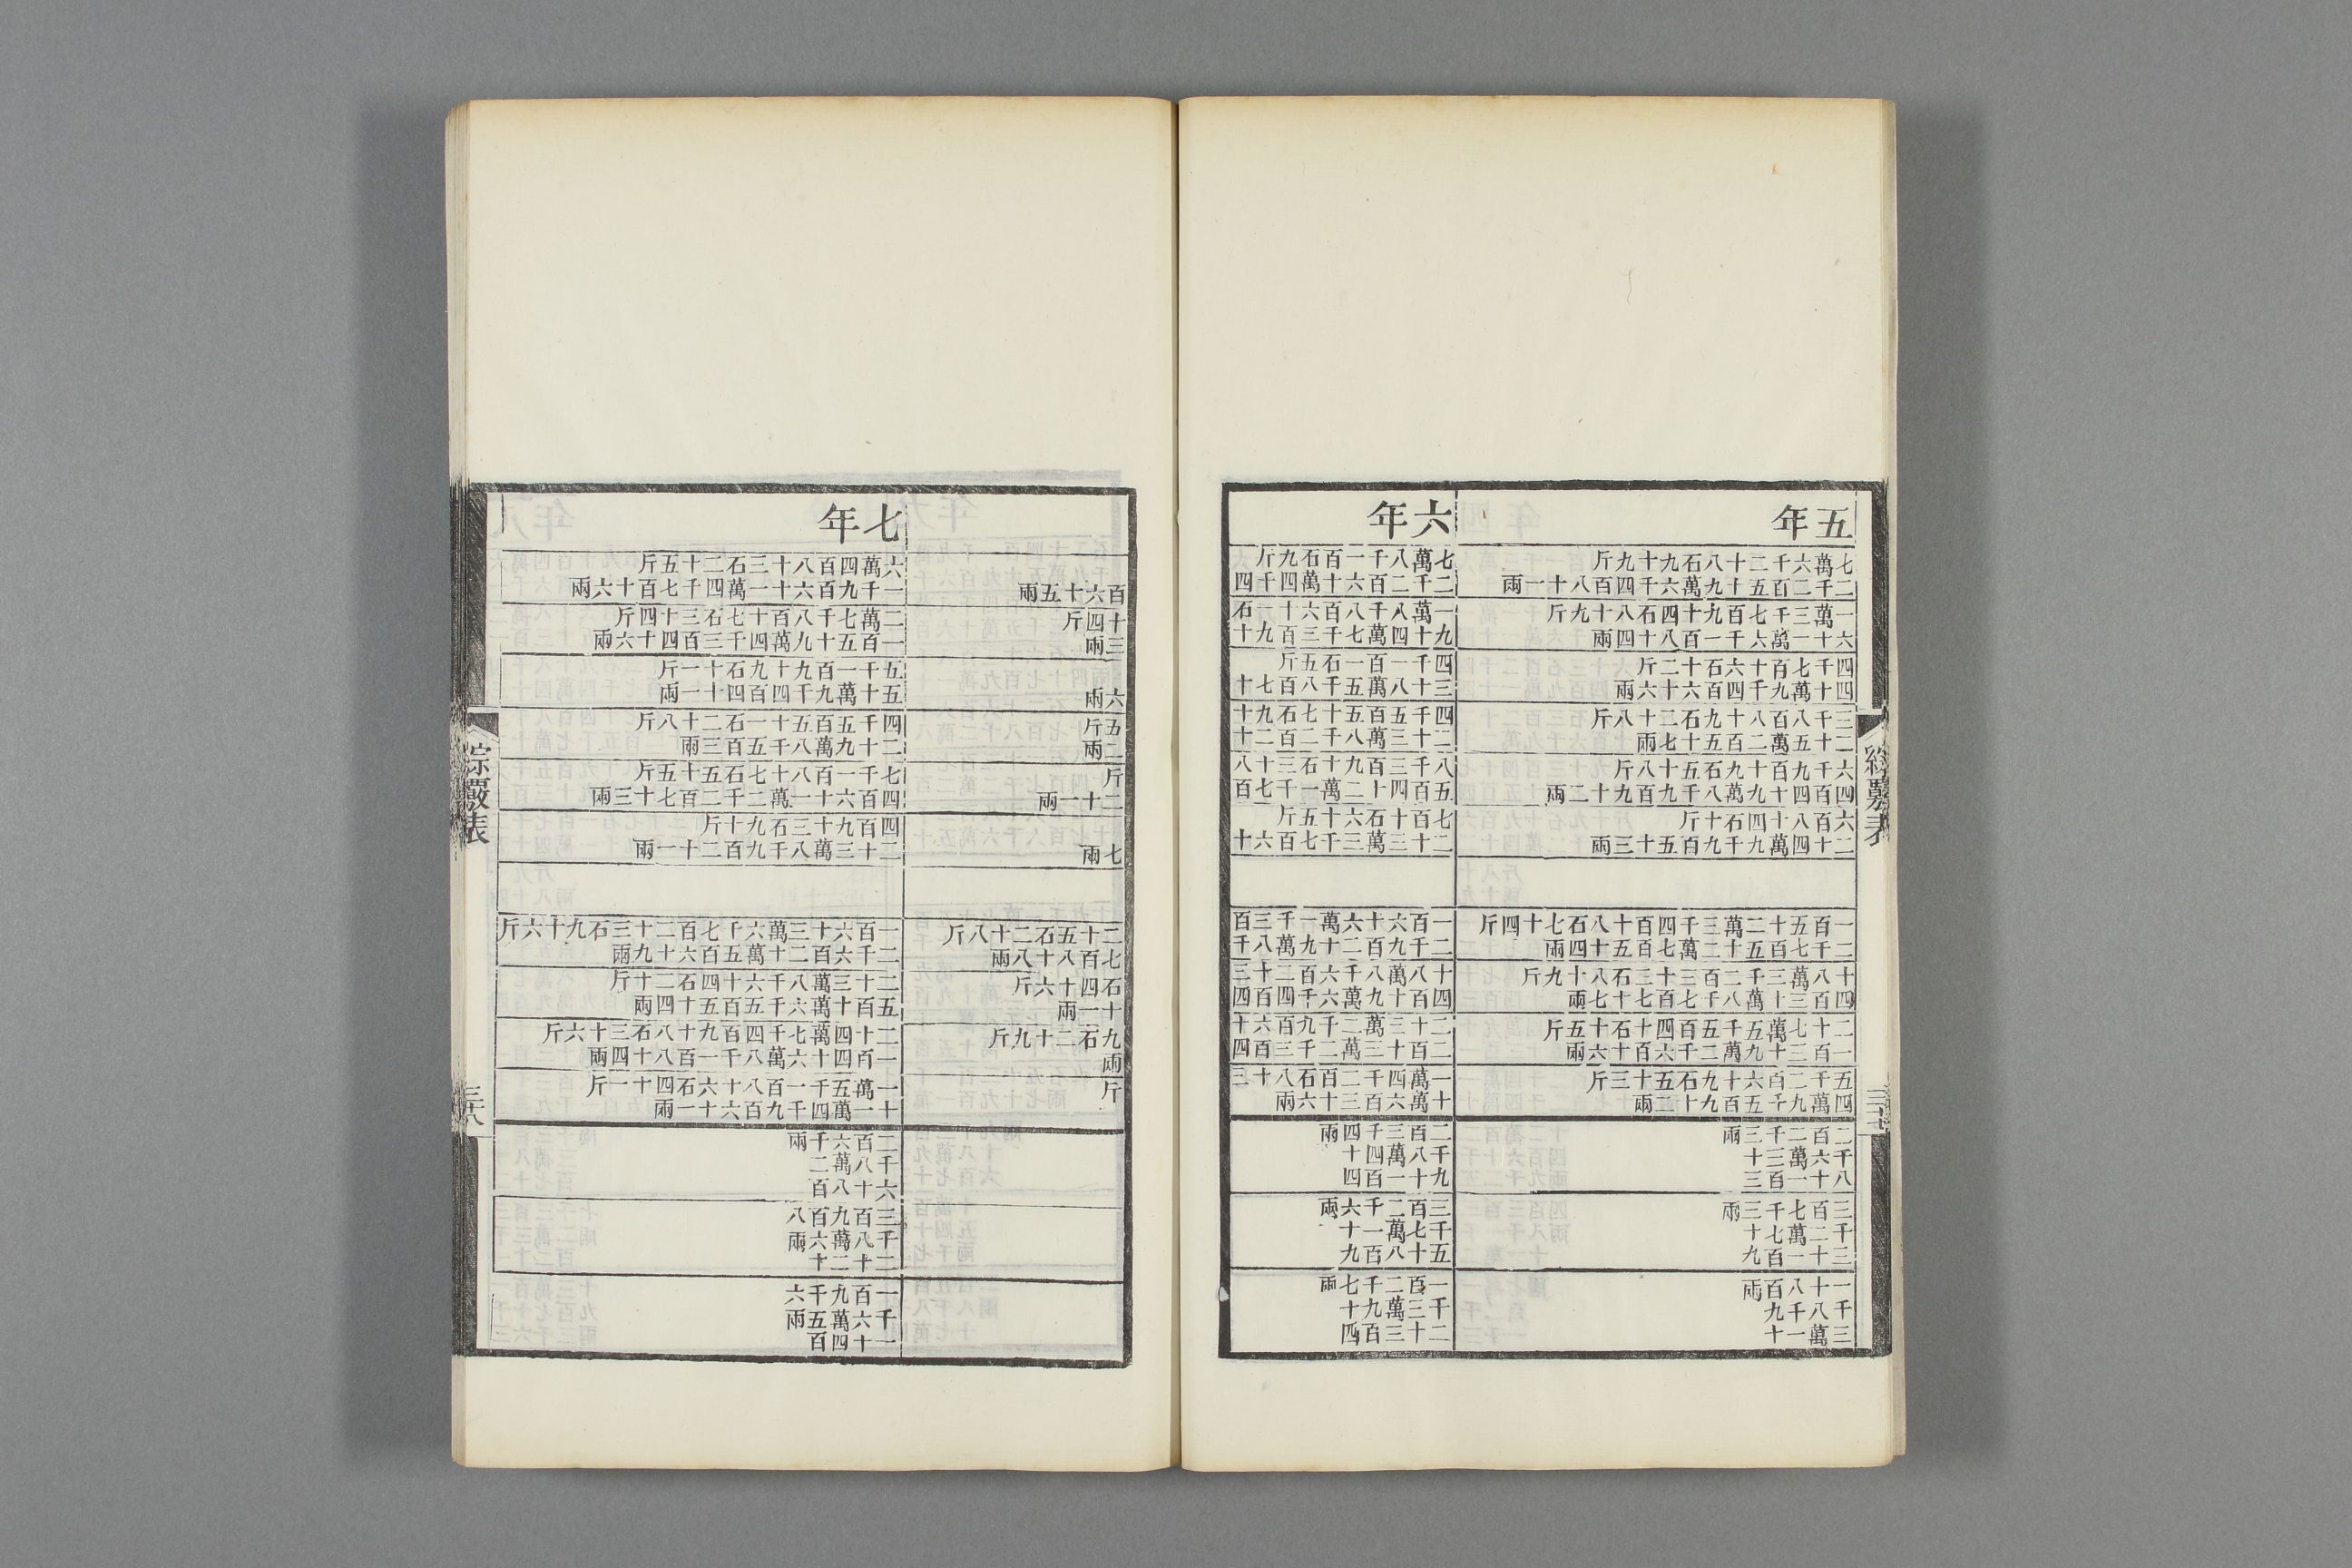 五年
七萬六千二十八石九十九斤
二千二百五十九萬六千四百八十一兩
一萬三千七百九十四石八十九斤
六十一萬六千一百八十四兩
四千七百十六石十二斤
四十萬九千四百六十六兩
三千八百八十九石二十八斤
二十五萬二百五十七兩
六千九百十九石五十八斤
四百四十九萬八千九百九十二兩
六百八十四石十斤
二十四萬九千九百五十三兩
一百五十二萬三千四百十八石七十四斤
二千七百五十二萬七百五十四兩
十八萬三千二百三十二石八十九斤
四百三十萬八千七百七十七兩
二十七萬五千五百四十石十五斤
一百三十九萬二千六百十六兩
五千二百六十九石五十三斤
四萬九千五百九十二兩
二千八
百六十
二萬一
千三百
三十三
兩
三千三
百二十
七萬一
千七百
三十九
兩
一千三
十八萬
八千一
百九十
兩
六年
七萬八千一百石九斤
二千二百六十萬四千四
一萬八千八百六十一石
九十四萬七千三百九十
四千一百一石五斤
三十八萬五千八百七十
四千五百五十七石九十
二十三萬八千二百二十
八千三百九十石三十八
五百四十二萬一千七百
七百十石六十五斤
二十三萬三千七百六十
一百六十六萬一千三百
二千九百二十九萬八千
十八萬八千六百二十三
四百十九萬六千四百四
二十三萬二千九百六十
二百十三萬二千三百四
一萬四千二百石八十三
十萬六百三十六兩
二千九
百八十
三萬一
千四百
四十四
兩
三千五
百七十
二萬八
千一百
六十九
兩
一千二
百三十
二萬三
千九百
七十四
兩
百六十五兩
十四斤
三兩
六兩
五斤
二兩
斤
二十一兩
七兩
二十五石二十八斤
七百八十八兩
石四十六斤
十一兩
九石二十九斤
兩
斤
七年
六萬四百八十三石二十五斤
一千九百六十一萬四千七百十六兩
二萬七千八百十七石三十四斤
一百五十九萬四千三百四十六兩
五千一百九十九石十一斤
五十萬九千四百四十一兩
四千五百五十一石二十八斤
二十九萬八千五百三兩
七千一百八十七石五十五斤
四百六十一萬二千二百七十三兩
四百九十三石九十斤
二十三萬八千九百二十一兩
一百六十三萬六千七百二十三石九十六斤
二千六百二十萬五百六十九兩
二十三萬八千六十四石二十斤
五百十萬六千五百五十四兩
二十四萬七千四百九十八石三十六斤
一百四十六萬八千一百八十四兩
一萬五千一百八十六石四十一斤
十一萬四千九百六十一兩
二千六
百八十
六萬八
千二百
兩
三千二
百八十
九萬二
百六十
八兩
一千一
百六十
九萬四
千五百
六兩
綜覈表